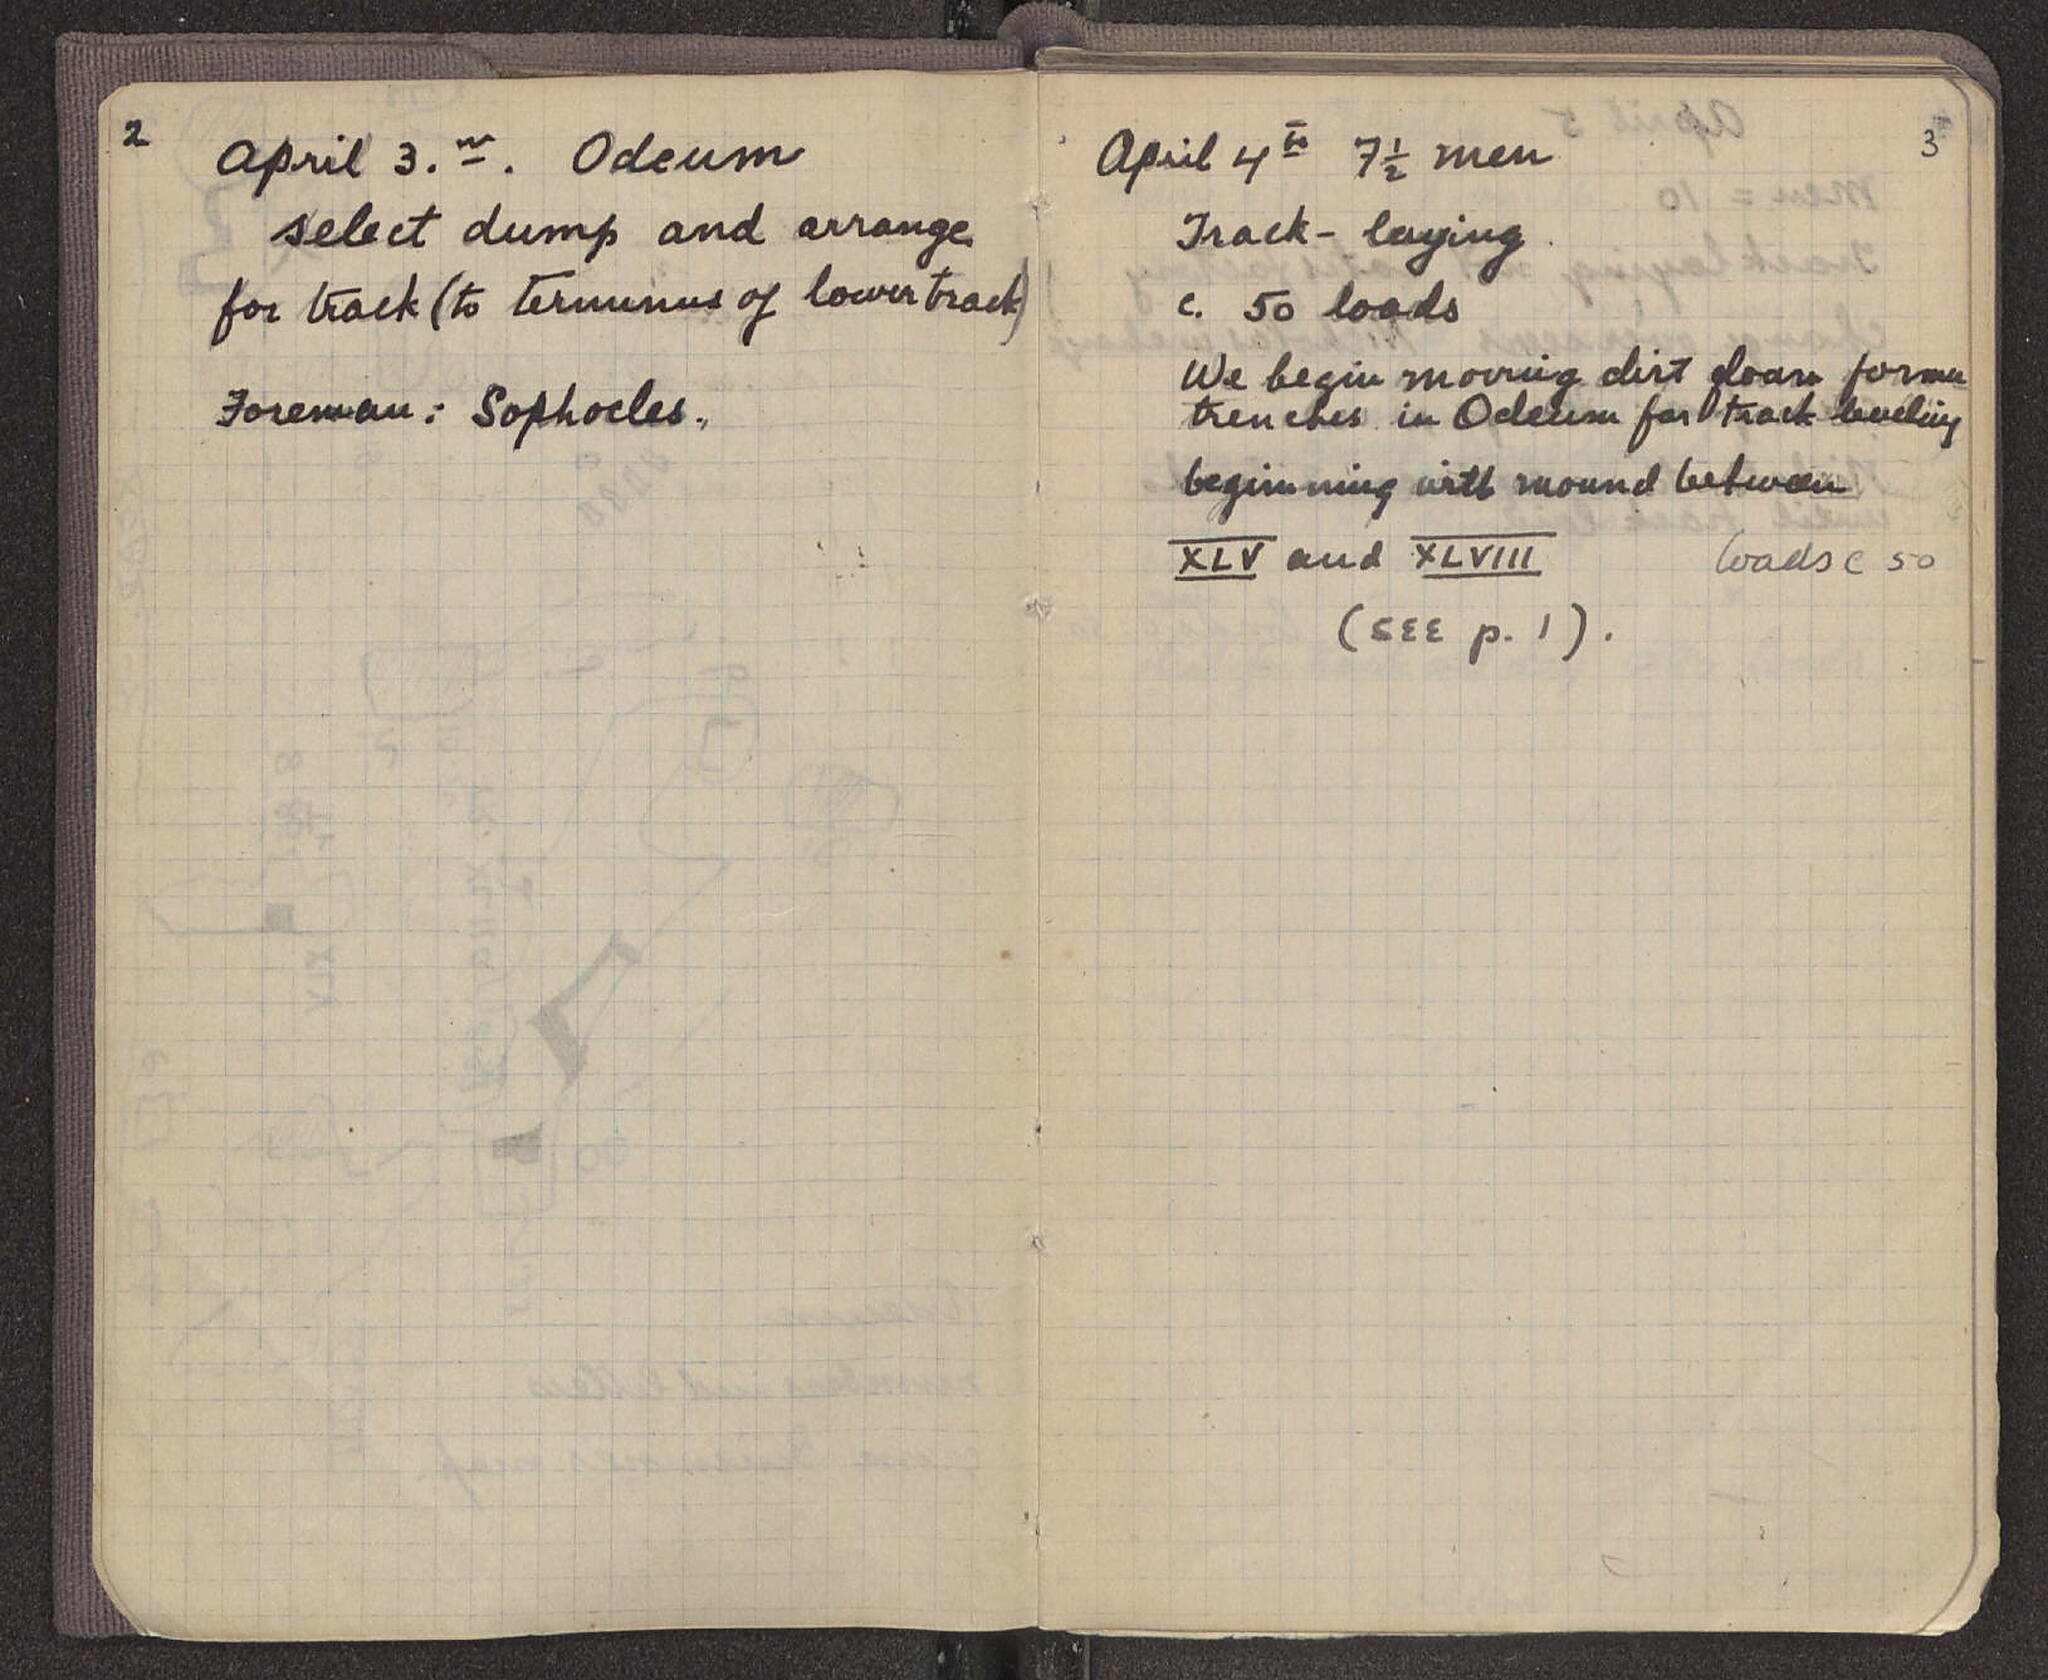 2
April 3. rd. Odeum
select dump and arrange
for track (to terminus of lower track)
Foreman: Sophocles.
3
April 4th 7½ men
Track-laying.
c. 50 loads
We begin moving dirt down former
trenches in Odeum for track leveling
beginning with mound between
XLV and XLVIII loads c 50
(SEE p. 1).